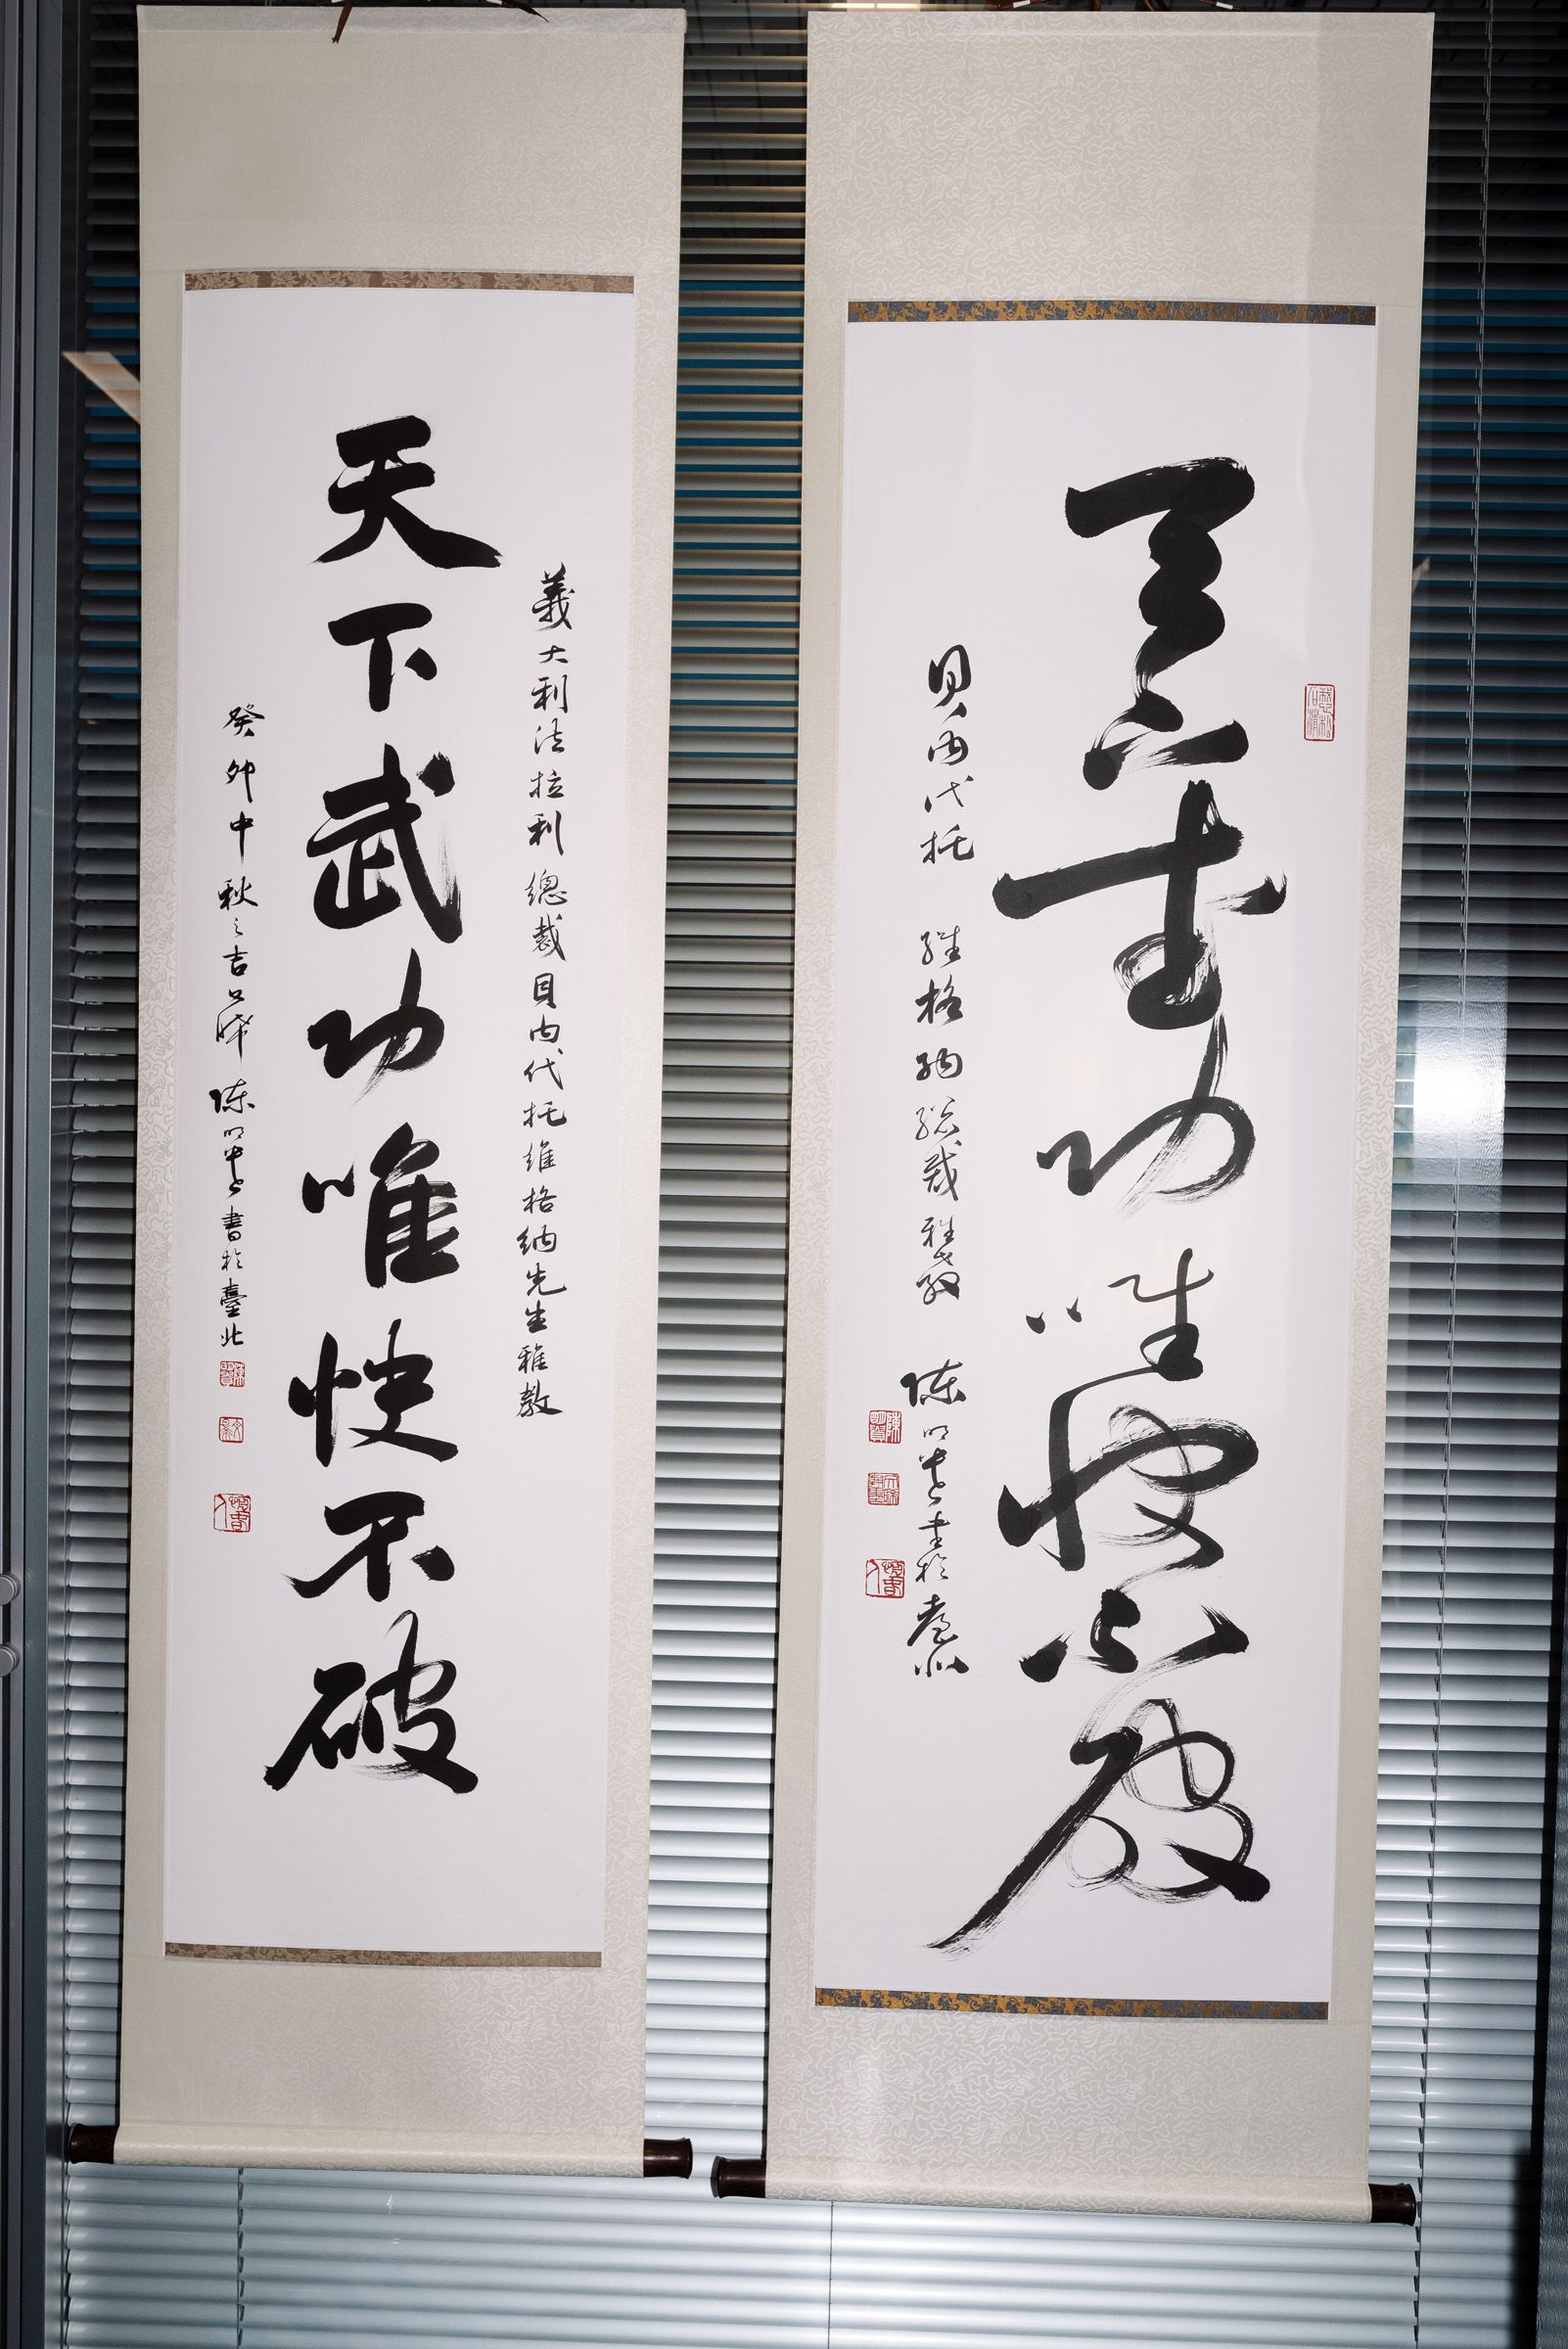 天下武功唯快不破
貝內代托 維格納總裁雅教 陳明貴書於臺北
義大利法拉利總裁貝內代托維格納先生雅教
天下武功唯快不破
癸卯中秋之吉 陳明貴書於臺北